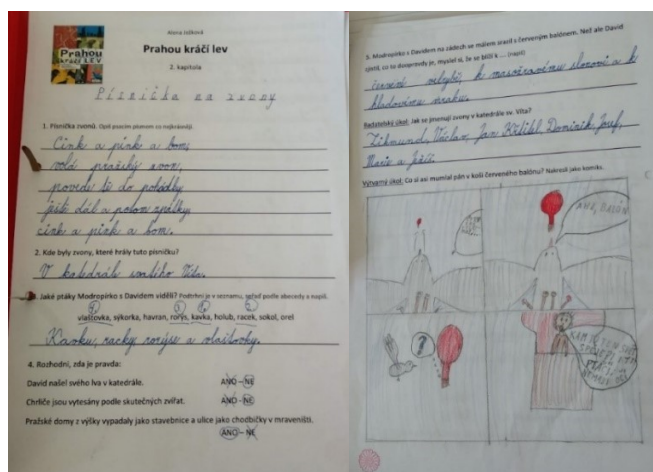 Alena Ježková
Prahou
kráčí LEV
Prahou kráčí lev
2. kapitola
Písnička na zvony
1. Písnička zvonů. Opiš psacím písmem co nejkrásněji.
Cink a pink a bom,
volá pražský zvon,
povede tě do pohádky
ještě dál a potom zpátky
cink a pink a bom.
2. Kde byly zvony, které hrály tuto písničku?
V katedrále svatého Víta.
3. Jaké ptáky Modropírko s Davidem viděli? Podtrhni je v seznamu, seřaď podle abecedy a napiš.
vlaštovka, sýkorka, havran, rorýs, kavka, holub, racek, sokol, orel
Kavku, racky rorýse a vlaštovky.
4. Rozhodni, zda je pravda:
David našel svého lva v katedrále. ANO - NE
Chrliče jsou vytesány podle skutečných zvířat. ANO - NE
Pražské domy z výšky vypadaly jako stavebnice a ulice jako chodbičky v mraveništi.
ANO - NE
5. Modropírko s Davidem na zádech se málem srazil s červeným balónem. Než ale David
zjistil, co to doopravdy je, myslel si, že se blíží k ... (napiš)
červené velrybě, k masožravému slonovi a k
hladovému mraku.
Badatelský úkol: Jak se jmenují zvony v katedrále sv. Víta?
Zikmund, Václav, Jan Křtitel, Dominik, Josef,
Marie a Ježíš.
Výtvarný úkol: Co si asi mumlal pán v koši červeného balónu? Nakresli jako komiks.
AHA, BALÓN
?
KAM TE TEN SVĚT